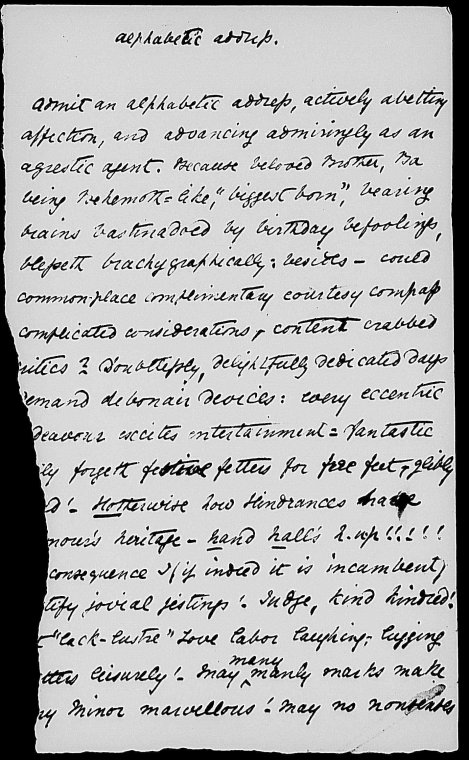 alphabetic address.
Admit an alphabetic address, actively abetting
affection, and advancing admiringly as an
agrestic agent. Because beloved Brother, Ba
being Behemoth=like, "biggest born", bearing
brains bastinadoed by birthday befoolings,
blesseth brachygraphically: besides – could
common-place complimentary courtesy compass
complicated considerations, & content crabbed
ritics? Doubtlessly, delightfully dedicated days
demand debonair devices: every eccentric
deavour excites entertainment = Fantastic
ily forgeth festive fetters for free feet, & glibly
d! – Hotterwise how Hindrances
mour's heritage – hand hall's h-up!!!!!
consequence I (if indeed it is incumbent)
tify jovial jestings! Judge, kind kindred!
"lack-lustre" Love labor laughing; lugging
etters leisurely! – May many manly marks make
ny Minor marvellous! May no